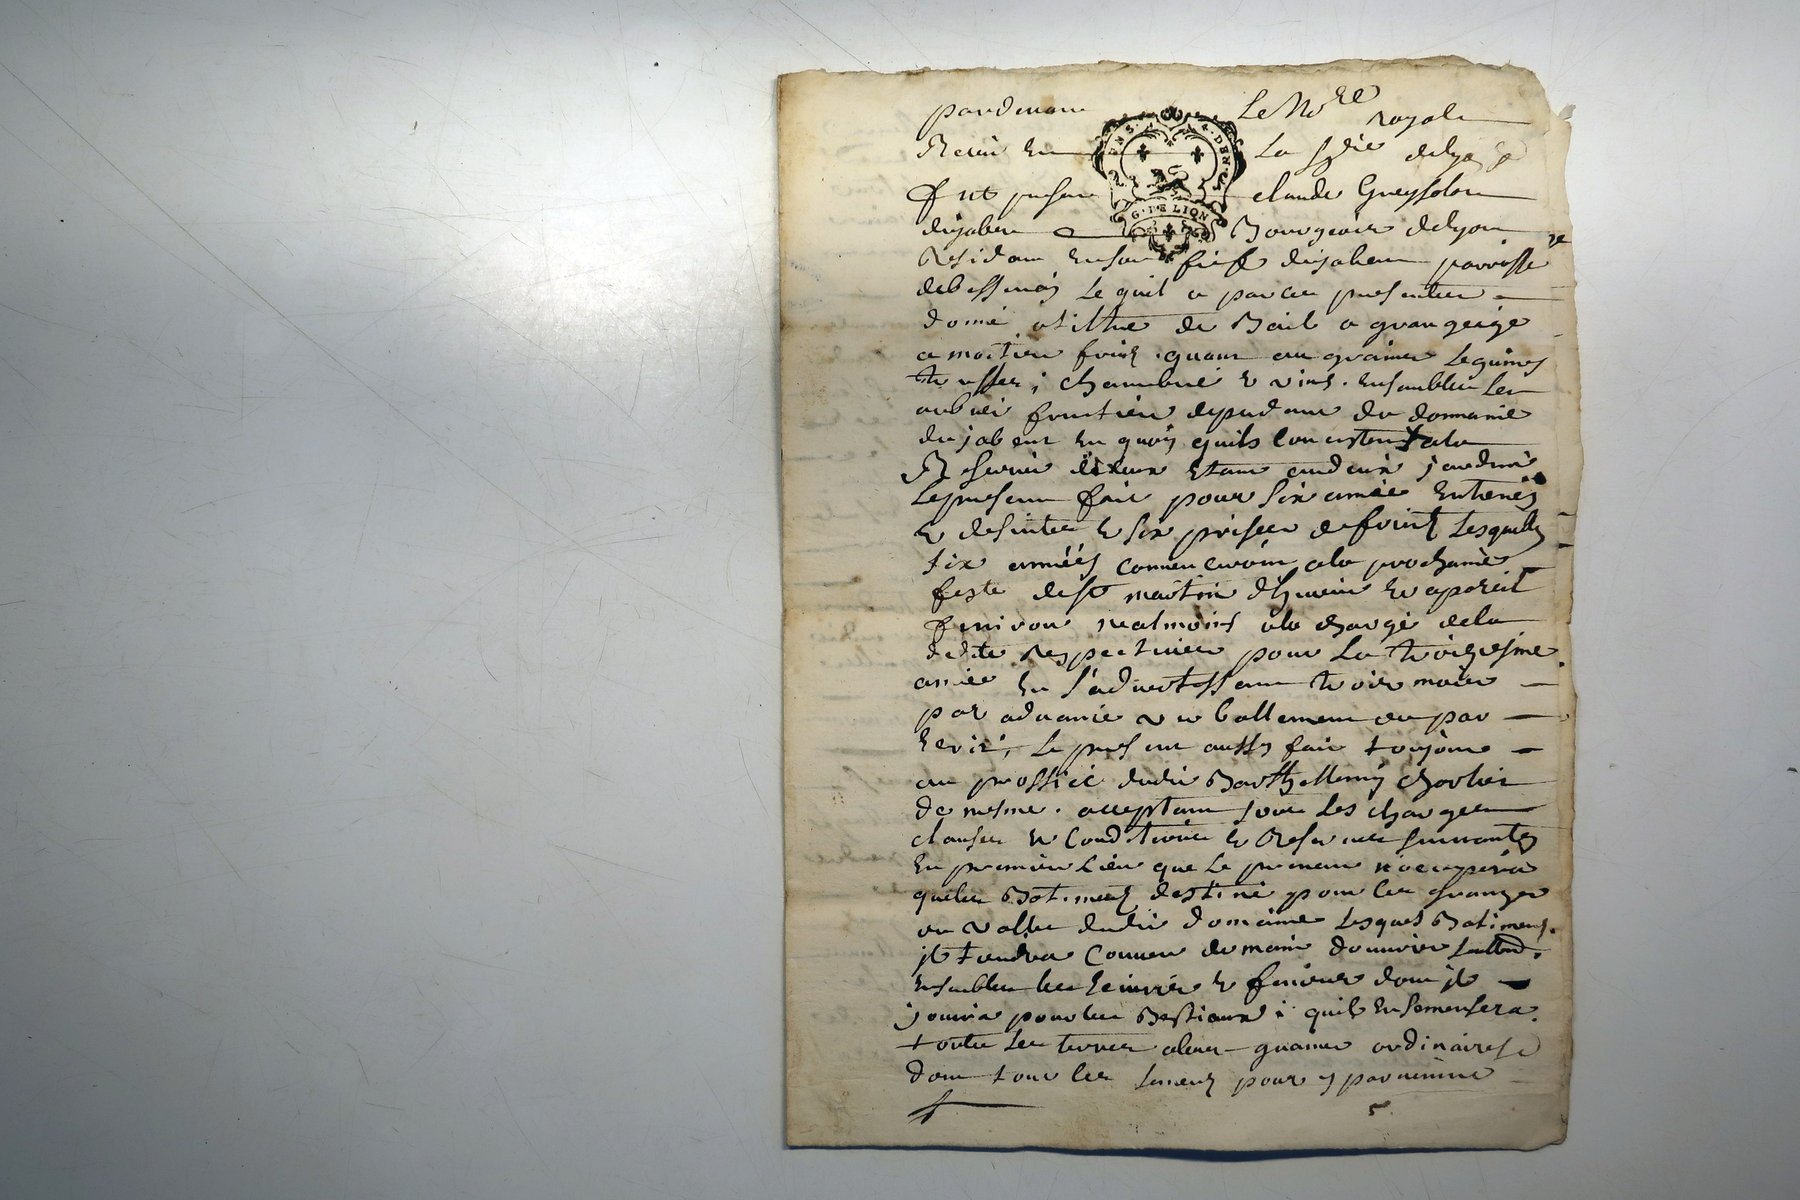 pardevant le No.re royal
Receu en la sen.ée de lyon
fut presant claude Greysolon
du jabeur Bourgeois de lyon
G. DE LION
Residant en son fief du jabeur parroisse
de bessenay Lequel a par ces presantes
donné a tiltre de Bail a grangeage
a moitier fruit quant au grains Legumes
truffes, chambre & vins. ensembles les
arbres fruitier dependant du domaine
du jabeur en quoy quils consistent a la
Reserve de ceux estant au deux jardins
le present fait pour six année entieres
& de suittes & six prises de fruit Lesquelles
six années commenceront a la prochaine
feste de st martin d'hiver & a pareil
finiront neatmoins a la charge de la
dedite respective pour la troizesme
année en s'advertissant trois mois
par advance verballement ou par
écrit, le present aussy fait toujour
au proffit dudit Barthellemy charbier
de mesme. acceptant sous les charges
clauses & conditions & Reserves suivantes
En premier lieu que le preneur n'occupera
que les Batiment destiné pour les granger
ou vallet dudit domaine lesquels Batiment
il tiendra couvert de main d'ouvrier
ensembles les écuries & feniere dont il
jouira pour les Bestiaux; quil ensemensera
toutte les terres a leur graines ordinaires
dont tout les semens pour y parvenir